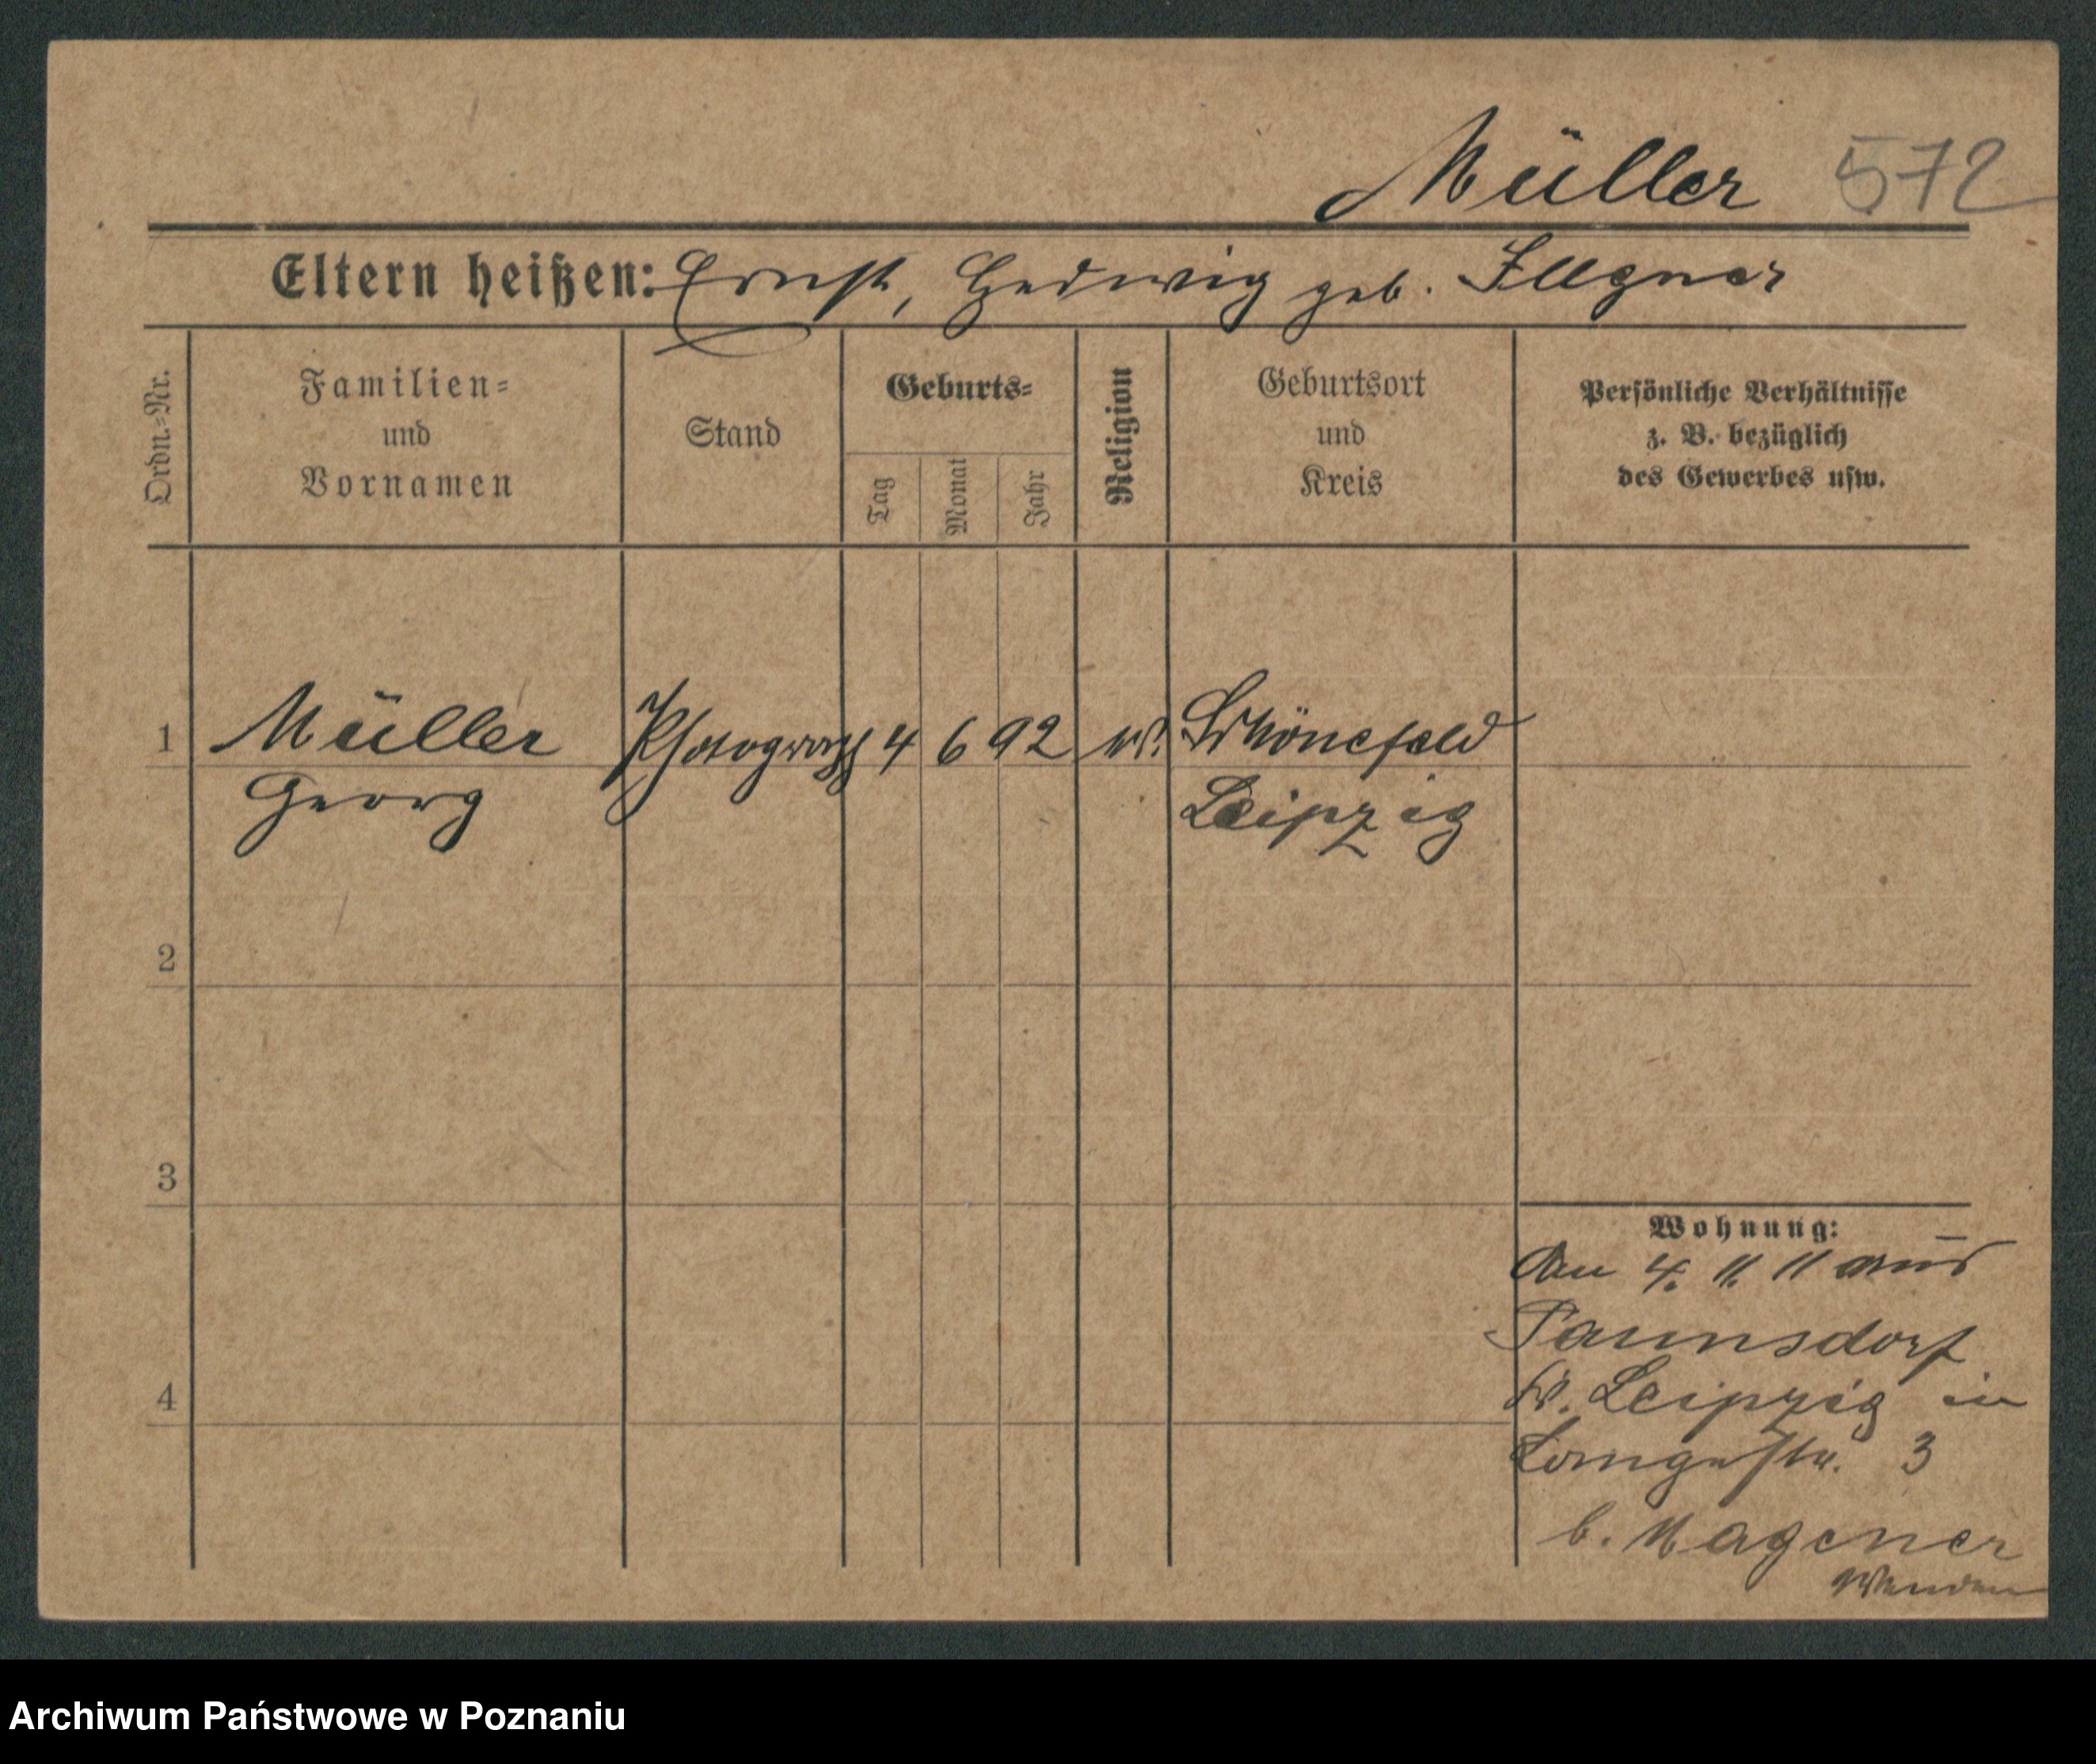 Müller 572
Eltern heißen: Ernst, Hedwig geb. Illgner
Ordn.-Nr.
Familien-
und
Vornamen
Stand
Geburts-
Tag
Monat
Jahr
Religion
Geburtsort
und
Kreis
Persönliche Verhältnisse
z. B. bezüglich
des Gewerbes usw.
1 Müller Photograph 4 6 92 Schönefeld
Georg Leipzig
2
3
4
Wohnung:
Am 4. 11. 11 aus
Paunsdorf
Leipzig in
Langestr. 3
b. Wagener
Wenden
Archiwum Państwowe w Poznaniu